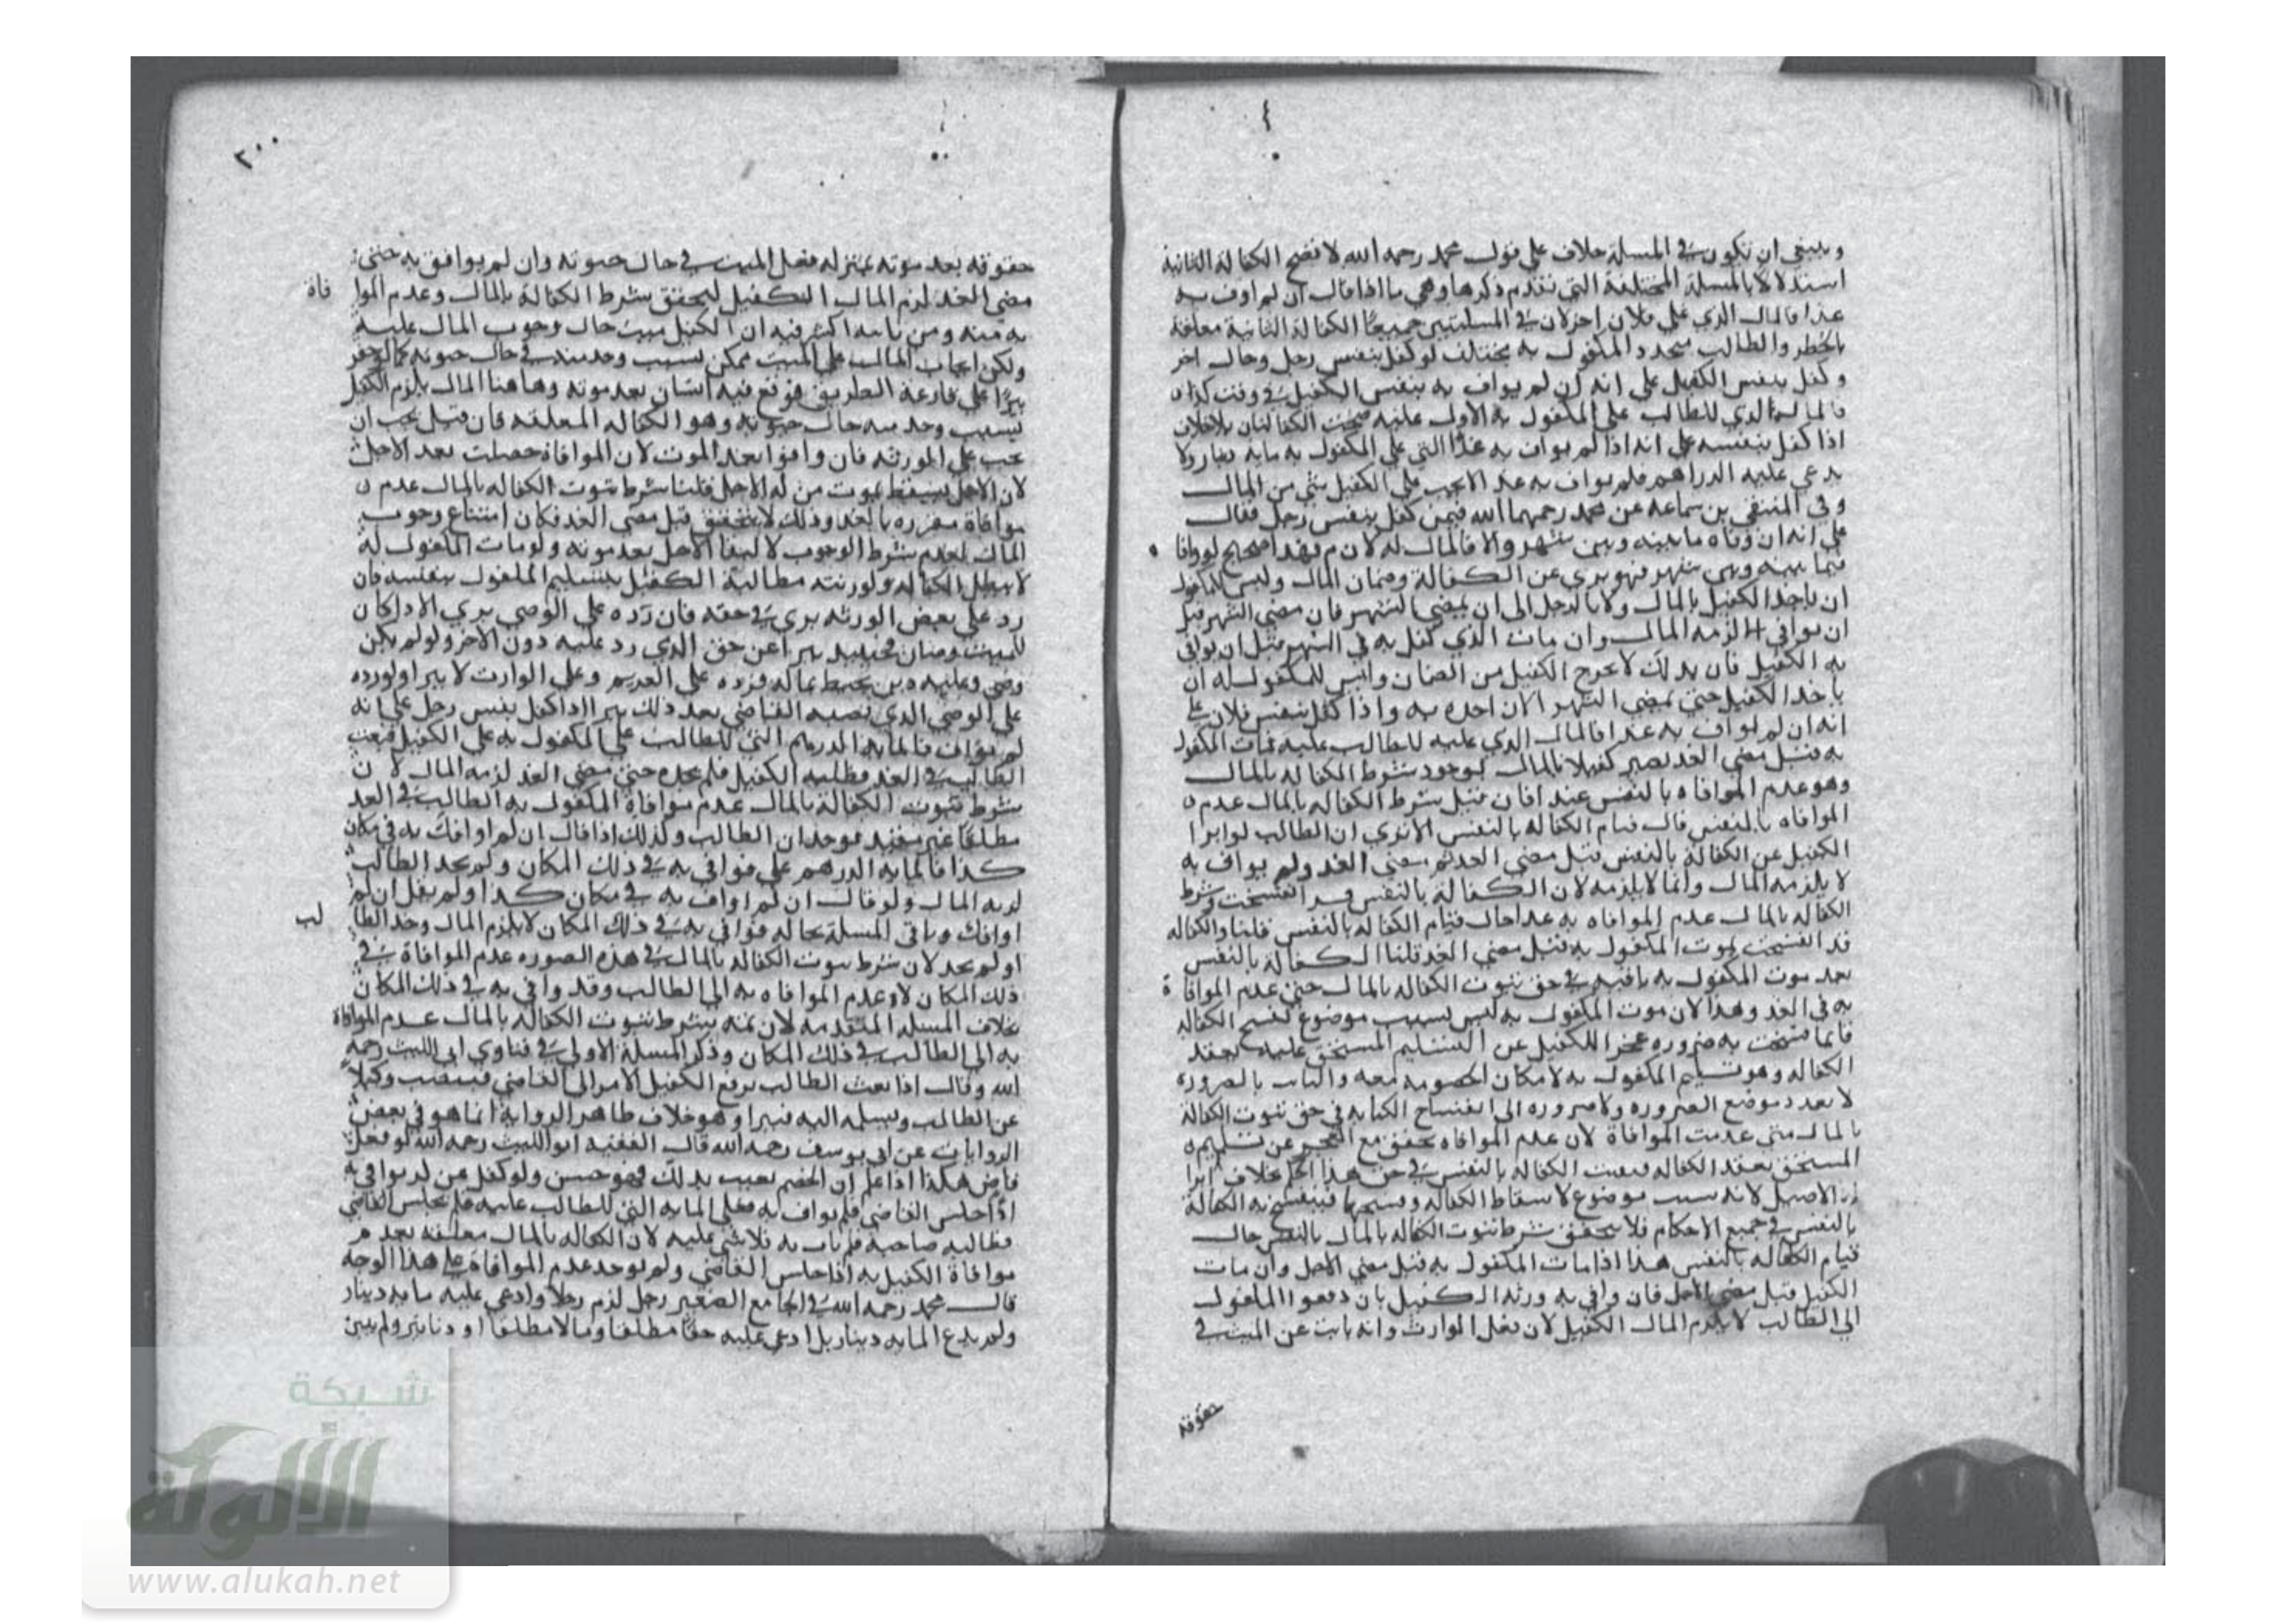 وينبغي ان تكون في المسلة خلاف على قول محمد رحمه الله لا تصح الكفالة الثانية
استدلالا بالمسلة المختلفة التي تقدم ذكرها وهي ما اذا قال ان لم اوف به
غدا فالمال الذي على فلان اخر لان في المسلتين جميعا الكفالة الثانية معلقة
بالخطر والطالب متحد والمكفول به مختلف لو كفل بنفس رجل وجال اخر
وكفل بنفس الكفيل على انه ان لم يواف به بنفس الكفيل في وقت كذا
فالمال الذي للطالب على المكفول به الاول عليه صحت الكفالتان بلا خلاف
اذا كفل بنفسه على انه اذا لم يواف به غدا التي على المكفول به مايه دينار ولا
يدعي عليه الدراهم فلم يواف به غد الا يجب على الكفيل شي من المال
وفي المنتقى بن سماعه عن محمد رحمهما الله فيمن كفل بنفس رجل فقال
على انه ان وفاه ما بينه وبين شهر والا فالمال له لازم فهذا صحيح لو وافا
فيما بينه وبين شهر فهو بري عن الكفالة وضمان المال وليس للمكفول
ان ياخذ الكفيل بالمال ولا بالرجل الى ان يمضي الشهر فان مضى الشهر قبل
ان يوافي لزمه المال وان مات الذي كفل به في الشهر قبل ان يوافي
به الكفيل فان بذلك لا يخرج الكفيل من الضمان وليس للمكفول له ان
ياخذ الكفيل حتى يمضي الشهر الان اخذه به واذا كفل بنفس فلان على
انه ان لم يواف به غدا فالمال الذي عليه للطالب عليه فمات المكفول
به قبل مضي الغد يصير كفيلا بالمال لوجود شرط الكفاله بالمال
وهو عدم الموافاه بالنفس عند افان قيل شرط الكفاله بالمال عدم
الموافاه بالنفس قال قيام الكفاله بالنفس الا ترى ان الطالب لو ابرا
الكفيل عن الكفالة بالنفس قبل مضي الغد ثم مضى الغد ولم يواف به
لا يلزمه المال وانما لا يلزمه لان الكفالة بالنفس قد انفسخت وشرط
الكفاله بالمال عدم الموافاه به غدا حال قيام الكفاله بالنفس قلنا والكفاله
قد انفسخت بموت المكفول به قبل مضي الغد قلنا الكفالة بالنفس
بعد موت المكفول به باقيه في حق ثبوت الكفاله بالمال حتى عدم الموافاة
به في الغد وهذا لان موت المكفول به ليس بسبب موضوع لفسخ الكفاله
فانما فسخت به ضروره عجز الكفيل عن التسليم المستحق عليه بعقد
الكفاله وهو تسليم المكفول به لامكان الخصومه معه والثابت بالضروره
لا يعدو موضع الضروره ولا ضروره الى انفساخ الكفاله في حق ثبوت الكفالة
بالمال متى عدمت الموافاة لان عدم الموافاه تحقق مع العجز عن تسليمه
المستحق بعقد الكفاله فبقيت الكفاله بالنفس في حق هذا الحكم بخلاف ابرا
الاصيل لانه سبب موضوع لاسقاط الكفاله وفسخها فينفسخ به الكفالة
بالنفس في جميع الاحكام فلا يتحقق شرط ثبوت الكفاله بالمال بالنفس حال
قيام الكفاله بالنفس هذا اذا مات المكفول به قبل مضي الاجل وان مات
الكفيل قبل مضي الاجل فان وافى به ورثه الكفيل بان دفعوا المكفول
الى الطالب لا يلزم المال الكفيل لان فعل الوارث وانه نايب عن الميت في
حقوقه
٢٠٠
حقوقه بعد موته بمنزله فعل الميت في حال حيوته وان لم يوافق به حتى
مضى الغد لزم المال الكفيل لتحقق شرط الكفالة بالمال وعدم الموا فاة
به منه ومن نايبه اكثر فيه ان الكفيل ميت حال وجوب المال عليه
ولكن ايجاب المال على الميت ممكن بسبب وجد منه في حال حيوته كما لو حفر
بيرا على قارعة الطريق فوقع فيه انسان بعد موته وها هنا المال يلزم الكفيل
بسبب وجد منه حال حيوته وهو الكفاله المعلقه فان قيل يجب ان
يجب على الورثه فان وافوا بعد الموت لان الموافاة حصلت بعد الاجل
لان الاجل يسقط بموت من له الاجل قلنا شرط ثبوت الكفاله بالمال عدم
موافاة مقرره بالغد وذلك لا يتحقق قبل مضى الغد فكان امتناع وجوب
المال لعدم شرط الوجوب لا لبقا الاجل بعد موته ولو مات المكفول له
لا تبطل الكفاله ولورثته مطالبة الكفيل بتسليم المكفول بنفسه فان
رد على بعض الورثه بري في حقه فان رده على الوصي بري الا اذا كان
للميت وصيان فحينيذ يبرا عن حق الذي رد عليه دون الاخر ولو لم يكن
وصي وعليه دين يحيط بماله فرده على الغريم وعلى الوارث لا يبرا ولو رده
على الوصي الذي نصبه القاضي بعد ذلك يبرا اذا كفل بنفس رجل على انه
لم يواف فالمايه الدرهم التي للطالب على المكفول به على الكفيل فتغيب
الطالب في الغد فطلبه الكفيل فلم يجده حتى مضى الغد لزمه المال لان
شرط ثبوت الكفالة بالمال عدم موافاة المكفول به الطالب في الغد
مطلقا غير مقيد بوجدان الطالب وكذلك اذا قال ان لم اوافك به في مكان
كذا فالمايه الدرهم علي فوافى به في ذلك المكان ولم يجد الطالب
لزمه المال ولو قال ان لم اواف به في مكان كذا ولم يقل ان لم
اوافك وباقي المسلة بحاله فوافى به في ذلك المكان لا يلزم المال وجد الطا لب
او لم يجد لان شرط ثبوت الكفاله بالمال في هذه الصوره عدم الموافاة في
ذلك المكان لا عدم الموافاه به الى الطالب وقد وافى به في ذلك المكان
بخلاف المسله المتقدمه لان ثمه شرط ثبوت الكفاله بالمال عدم الموافاة
به الى الطالب في ذلك المكان وذكر المسلة الاولى في فتاوي ابي الليث رحمه
الله وقال اذا تغيب الطالب يرفع الكفيل الامر الى القاضي فينصب وكيلا
عن الطالب ويسلمه اليه فيبرا وهو خلاف ظاهر الرواية انما هو في بعض
الروايات عن ابي يوسف رحمه الله قال الفقيه ابو الليث رحمه الله لو فعل
قاض هكذا اذا علم ان الخصم تغيب بذلك فهو حسن ولو كفل عن لم يوافي به
اذا جلس القاضي فلم يواف به فعلي المايه التي للطالب عليه فلم يجلس القاضي
فطالبه صاحبه فلم يات به فلا شي عليه لان الكفاله بالمال معلقه بعدم
موافاة الكفيل به اذا جلس القاضي ولم يوجد عدم الموافاة على هذا الوجه
قال محمد رحمه الله في الجامع الصغير رجل لزم رجلا وادعى عليه مايه دينار
ولم يدع المايه دينار بل ادعى عليه حقا مطلقا ومالا مطلقا او دنانير ولم يبين
شبكة
الألوكة
www.alukah.net